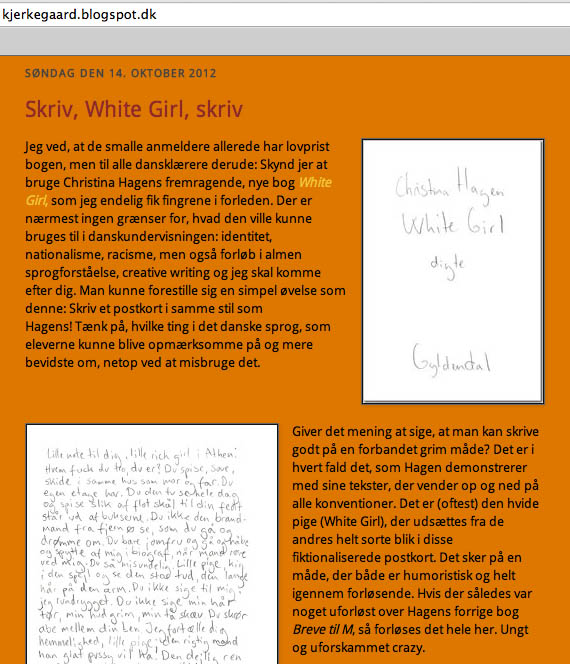 kjerkegaard.blogspot.dk
SØNDAG DEN 14. OKTOBER 2012
Skriv, White Girl, skriv
Jeg ved, at de smalle anmeldere allerede har lovprist
bogen, men til alle dansklærere derude: Skynd jer at
bruge Christina Hagens fremragende, nye bog White
Girl, som jeg endelig fik fingrene i forleden. Der er
nærmest ingen grænser for, hvad den ville kunne
bruges til i danskundervisningen: identitet,
nationalisme, racisme, men også forløb i almen
sprogforståelse, creative writing og jeg skal komme
efter dig. Man kunne forestille sig en simpel øvelse som
denne: Skriv et postkort i samme stil som
Hagens! Tænk på, hvilke ting i det danske sprog, som
eleverne kunne blive opmærksomme på og mere
bevidste om, netop ved at misbruge det.
Christina Hagen
White Girl
digte
Gyldendal
Lille note til dig, lille rich girl i Athen!
Hvem fuck du tro, du er? Du spise, sove,
skide i samme hus som mor og far. Du
egen etage har. Du den tv se hele dag
og spise slik af flot skål til din fedt
står ud af bukserne. Du ikke den brand-
mand fra fjern ø se, som du gå og
drømme om. Du bare jomfru og gå og hakke
og sputte af mig i biograf, når mand røre
ved mig. Du så misundelig. Lille pige, kig
i den spejl og se den stod tud, den lange
hår på den arm. Du ikke sige til mig:
jeg rundrygget. Du ikke sige min hår
tør, min hud grim, min tå skæv. Du skør
abe mellem din ben. Jeg fortælle dig
hemmelighed, lille pige: den rigtig mand
han glat pussy vil ha! Den dejlig ren
Giver det mening at sige, at man kan skrive
godt på en forbandet grim måde? Det er i
hvert fald det, som Hagen demonstrerer
med sine tekster, der vender op og ned på
alle konventioner. Det er (oftest) den hvide
pige (White Girl), der udsættes fra de
andres helt sorte blik i disse
fiktionaliserede postkort. Det sker på en
måde, der både er humoristisk og helt
igennem forløsende. Hvis der således var
noget uforløst over Hagens forrige bog
Breve til M, så forløses det hele her. Ungt
og uforskammet crazy.